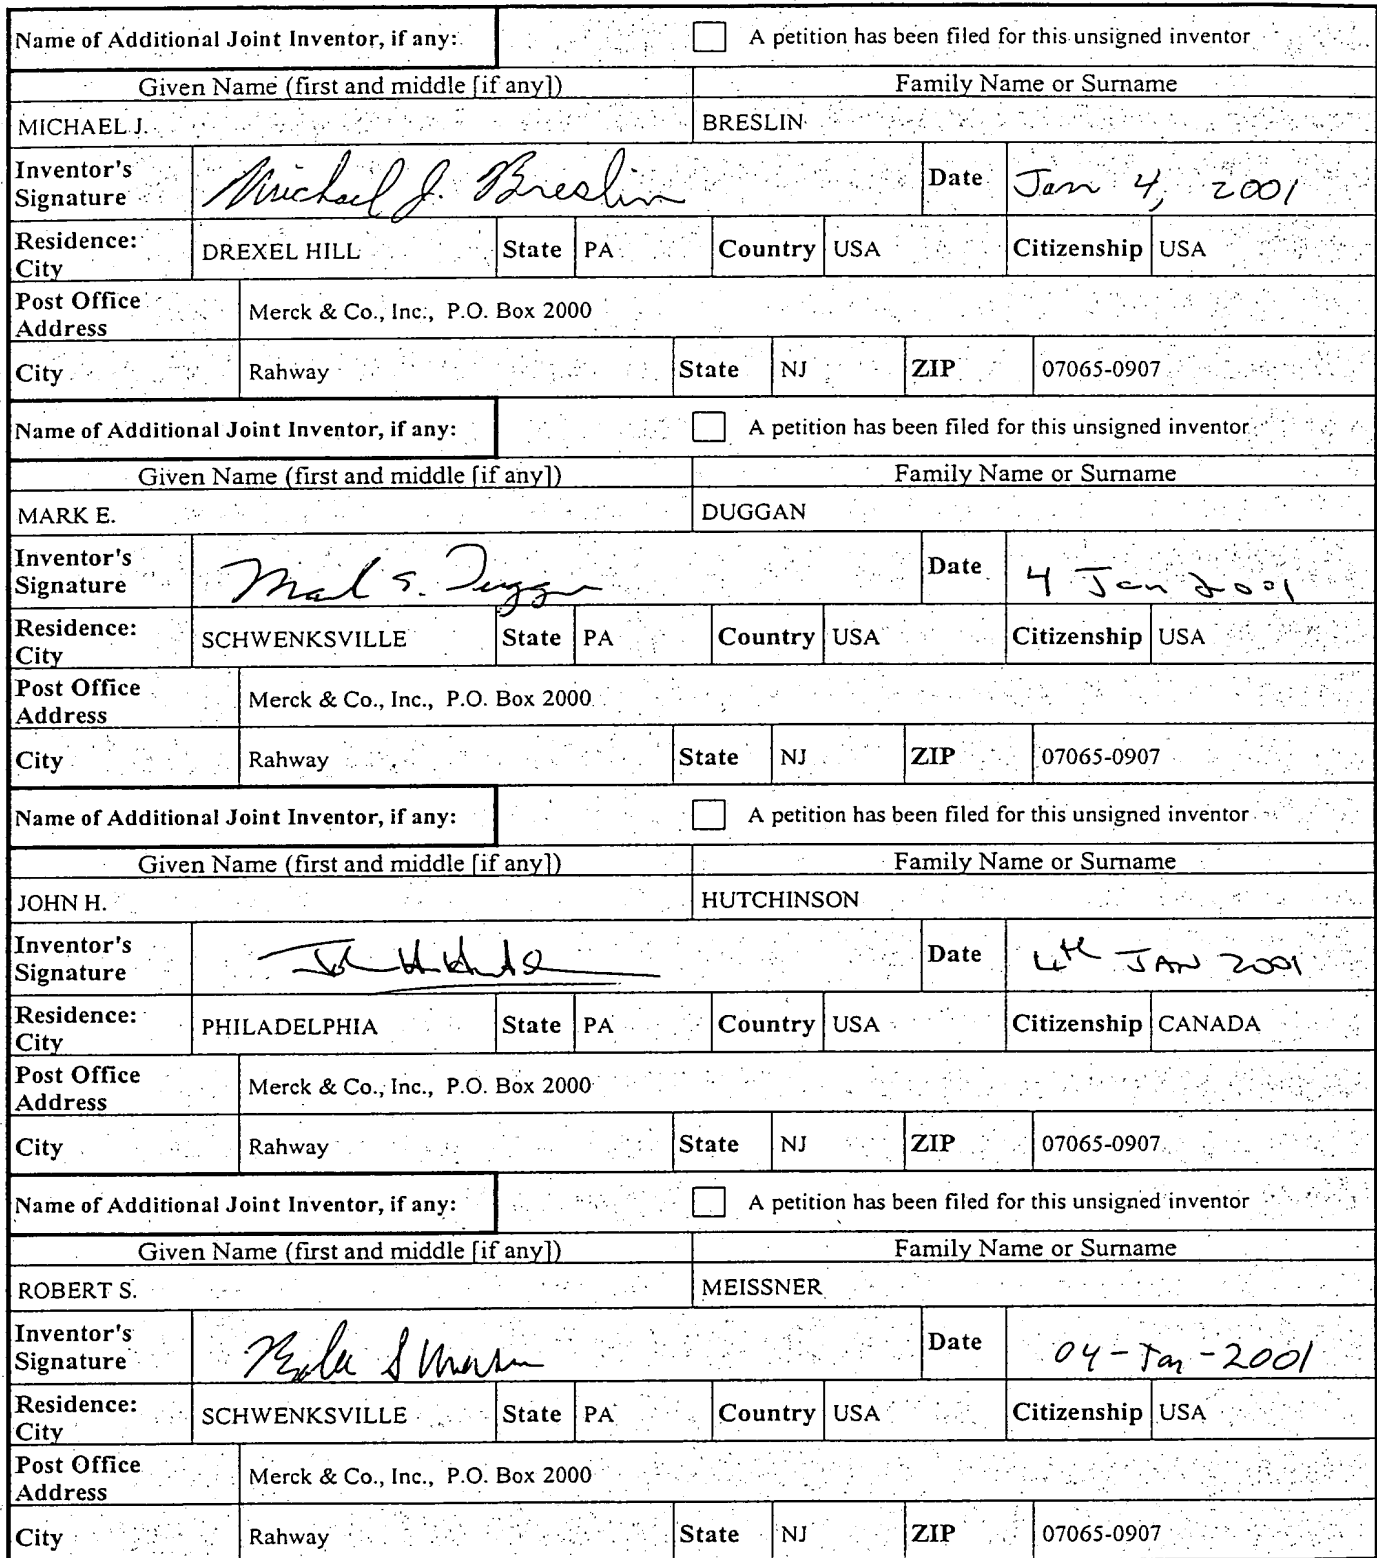 Name of Additional Joint Inventor, if any: A petition has been filed for this unsigned inventor
Given Name (first and middle [if any]) Family Name or Surname
MICHAEL J. BRESLIN
Inventor's Signature Michael J. Breslin Date Jan 4, 2001
Residence: City DREXEL HILL State PA Country USA Citizenship USA
Post Office Address Merck & Co., Inc., P.O. Box 2000
City Rahway State NJ ZIP 07065-0907
Name of Additional Joint Inventor, if any: A petition has been filed for this unsigned inventor
Given Name (first and middle [if any]) Family Name or Surname
MARK E. DUGGAN
Inventor's Signature Date 4 Jan 2001
Residence: City SCHWENKSVILLE State PA Country USA Citizenship USA
Post Office Address Merck & Co., Inc., P.O. Box 2000
City Rahway State NJ ZIP 07065-0907
Name of Additional Joint Inventor, if any: A petition has been filed for this unsigned inventor
Given Name (first and middle [if any]) Family Name or Surname
JOHN H. HUTCHINSON
Inventor's Signature Date 4th JAN 2001
Residence: City PHILADELPHIA State PA Country USA Citizenship CANADA
Post Office Address Merck & Co., Inc., P.O. Box 2000
City Rahway State NJ ZIP 07065-0907
Name of Additional Joint Inventor, if any: A petition has been filed for this unsigned inventor
Given Name (first and middle [if any]) Family Name or Surname
ROBERT S. MEISSNER
Inventor's Signature Date 04-Jan-2001
Residence: City SCHWENKSVILLE State PA Country USA Citizenship USA
Post Office Address Merck & Co., Inc., P.O. Box 2000
City Rahway State NJ ZIP 07065-0907